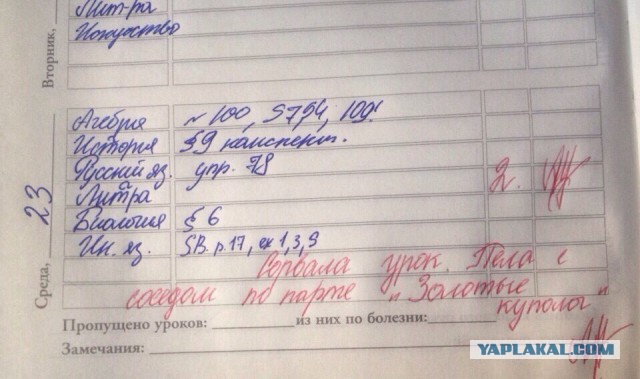 Вторник,
Лит-ра
Искусство
Среда, 23
Агебра № 100, 5794, 109!
История §9 конспект.
Русский яз. упр. 78 2.
Литра
Биология § 6
Ин. яз. SB. p. 17, ex 1,3,9
Сорвала урок. Пела с
соседом по парте "Золотые
купола"
Пропущено уроков: из них по болезни:
Замечания:
YAPLAKAL.COM